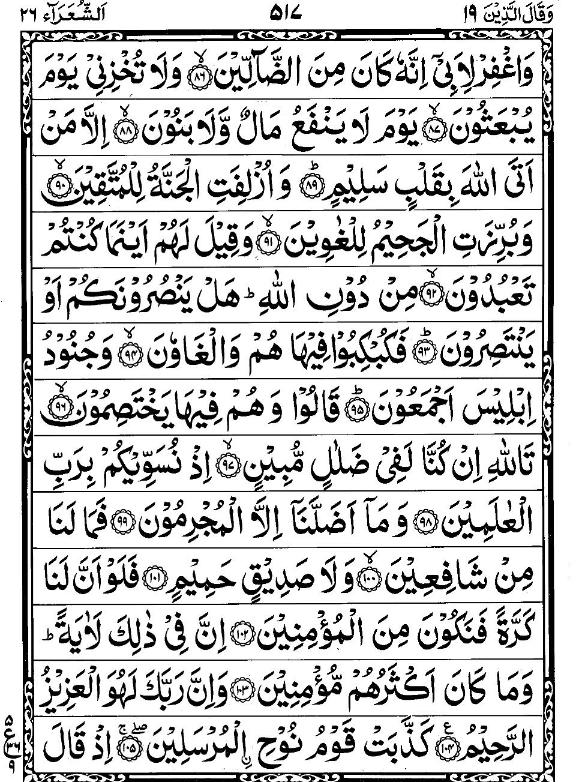 وَقَالَ الَّذِيْنَ ١٩ ٥١٧ اَلشُّعَرَآء ٢٦
وَاغْفِرْ لِاَبِيْۤ اِنَّهٗ كَانَ مِنَ الضَّآلِّيْنَ ﴿٨٦﴾ وَلَا تُخْزِنِيْ يَوْمَ
يُبْعَثُوْنَ ﴿٨٧﴾ يَوْمَ لَا يَنْفَعُ مَالٌ وَّلَا بَنُوْنَ ﴿٨٨﴾ اِلَّا مَنْ
اَتَى اللّٰهَ بِقَلْبٍ سَلِيْمٍ ﴿٨٩﴾ وَاُزْلِفَتِ الْجَنَّةُ لِلْمُتَّقِيْنَ ﴿٩٠﴾
وَبُرِّزَتِ الْجَحِيْمُ لِلْغٰوِيْنَ ﴿٩١﴾ وَقِيْلَ لَهُمْ اَيْنَمَا كُنْتُمْ
تَعْبُدُوْنَ ﴿٩٢﴾ مِنْ دُوْنِ اللّٰهِ ؕ هَلْ يَنْصُرُوْنَكُمْ اَوْ
يَنْتَصِرُوْنَ ﴿٩٣﴾ فَكُبْكِبُوْا فِيْهَا هُمْ وَالْغَاوٗنَ ﴿٩٤﴾ وَجُنُوْدُ
اِبْلِيْسَ اَجْمَعُوْنَ ﴿٩٥﴾ قَالُوْا وَهُمْ فِيْهَا يَخْتَصِمُوْنَ ﴿٩٦﴾
تَاللّٰهِ اِنْ كُنَّا لَفِيْ ضَلٰلٍ مُّبِيْنٍ ﴿٩٧﴾ اِذْ نُسَوِّيْكُمْ بِرَبِّ
الْعٰلَمِيْنَ ﴿٩٨﴾ وَمَاۤ اَضَلَّنَاۤ اِلَّا الْمُجْرِمُوْنَ ﴿٩٩﴾ فَمَا لَنَا
مِنْ شَافِعِيْنَ ﴿١٠٠﴾ وَلَا صَدِيْقٍ حَمِيْمٍ ﴿١٠١﴾ فَلَوْ اَنَّ لَنَا
كَرَّةً فَنَكُوْنَ مِنَ الْمُؤْمِنِيْنَ ﴿١٠٢﴾ اِنَّ فِيْ ذٰلِكَ لَاٰيَةً ؕ
وَمَا كَانَ اَكْثَرُهُمْ مُّؤْمِنِيْنَ ﴿١٠٣﴾ وَاِنَّ رَبَّكَ لَهُوَ الْعَزِيْزُ
الرَّحِيْمُ ﴿١٠٤﴾ كَذَّبَتْ قَوْمُ نُوْحِ اِ۟لْمُرْسَلِيْنَ ﴿١٠٥﴾ اِذْ قَالَ
٥
ع ٣٦
٩